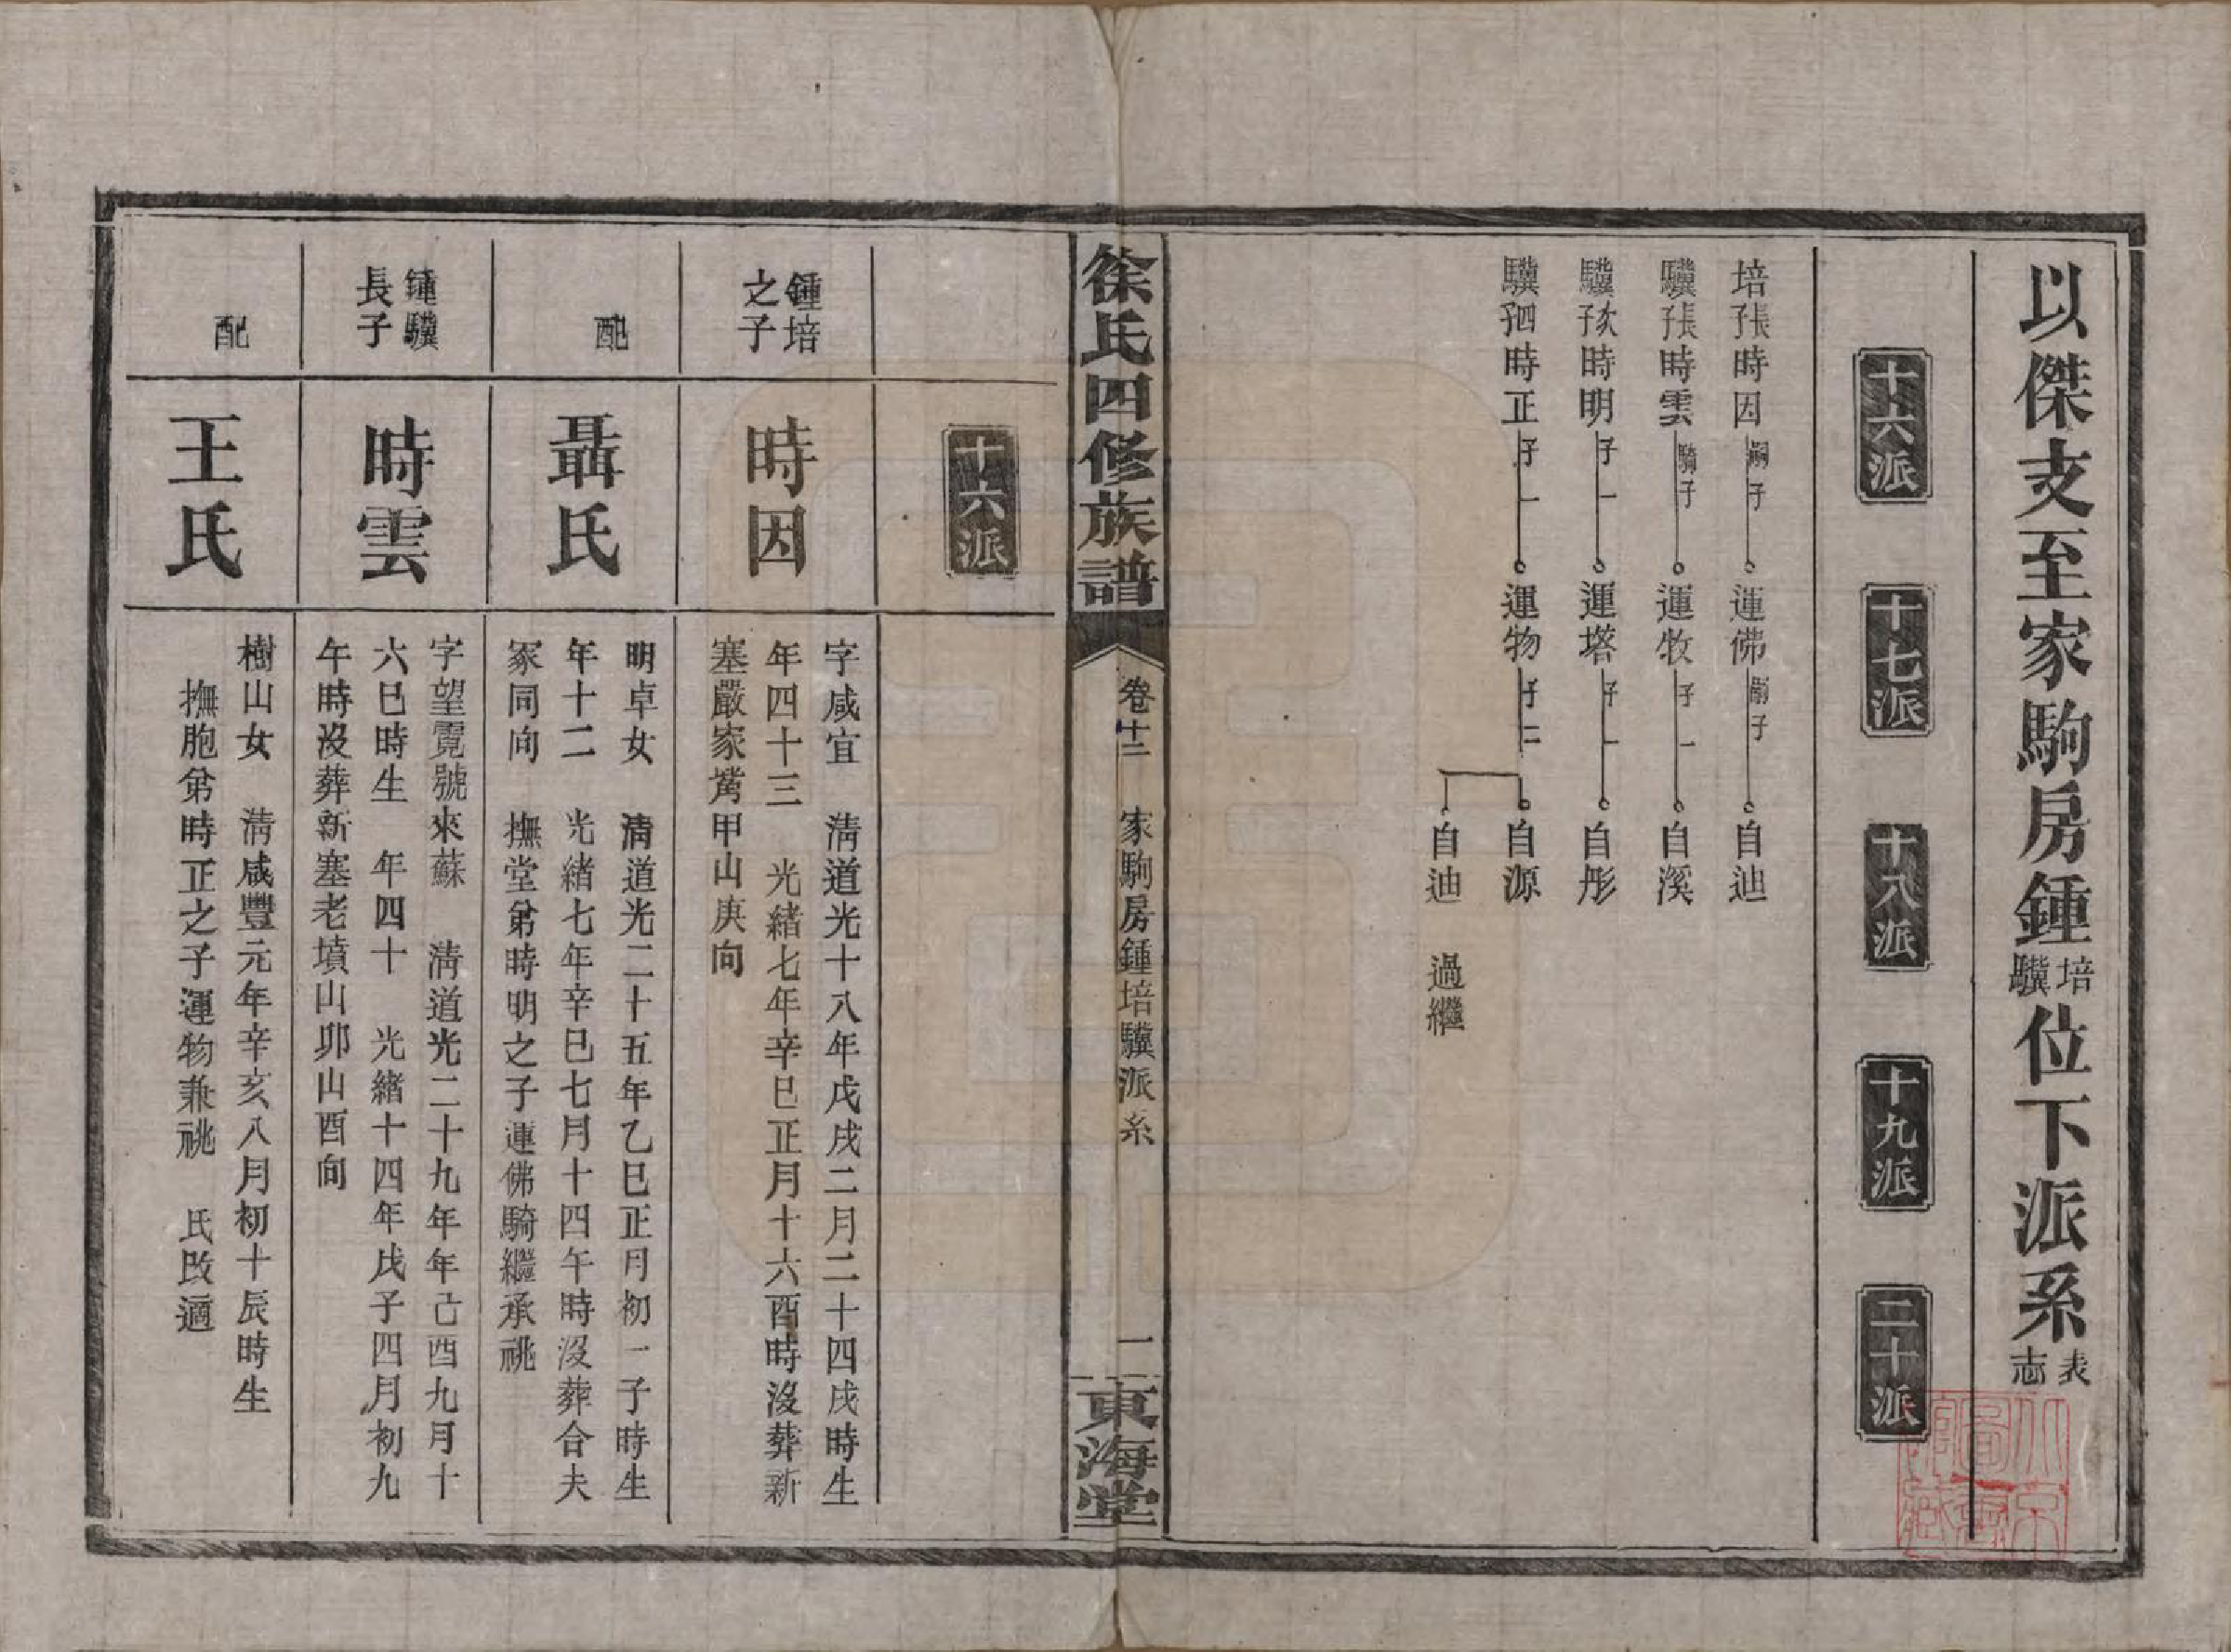 以傑支至家駒房鍾培驥位下派系表志
十六派
十七派
十八派
十九派
二十派
培長子時因 嗣子 運佛 嗣子 自迪
驥長子時雲 騎子 運牧 子一 自溪
驥次子時明 子一 運塔 子一 自彤
驥四子時正 子一 運物 子二 自源
自迪 過繼
徐氏四修族譜
卷十二 家駒房鍾培驥派系 一
東海堂
十六派
鍾培之子
時因
字咸宜 淸道光十八年戊戌二月二十四戌時生
年四十三 光緒七年辛巳正月十六酉時沒葬新
塞嚴家嵩甲山庚向
配
聶氏
明卓女 淸道光二十五年乙巳正月初一子時生
年十二 光緒七年辛巳七月十四午時沒葬合夫
冢同向 撫堂弟時明之子運佛騎繼承祧
鍾驥長子
時雲
字望霓號來蘇 淸道光二十九年年己酉九月十
六巳時生 年四十 光緒十四年戊子四月初九
午時沒葬新塞老墳山卯山酉向
配
王氏
樹山女 淸咸豐元年辛亥八月初十辰時生
撫胞弟時正之子運物兼祧 氏改適